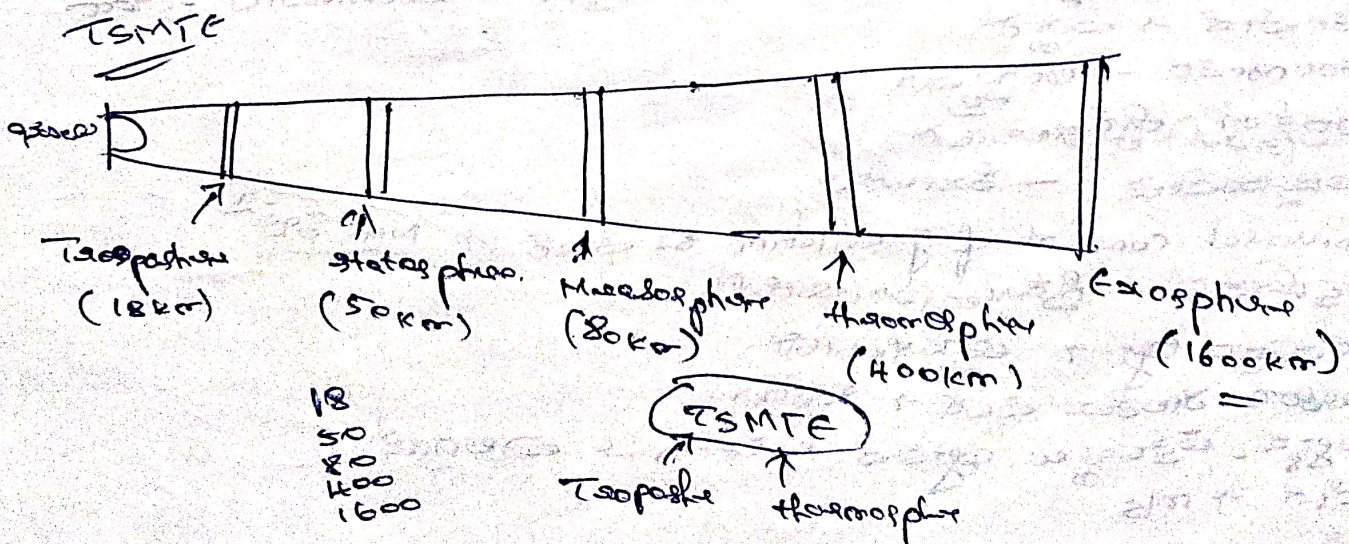 TSMTE
Troposphere
(18km)
Statosphere.
(50km)
Measosphere
(80km)
thromosphere
(400km)
Exosphere
(1600km)
18
50
80
400
1600
TSMTE
Tropashe
thermosphre